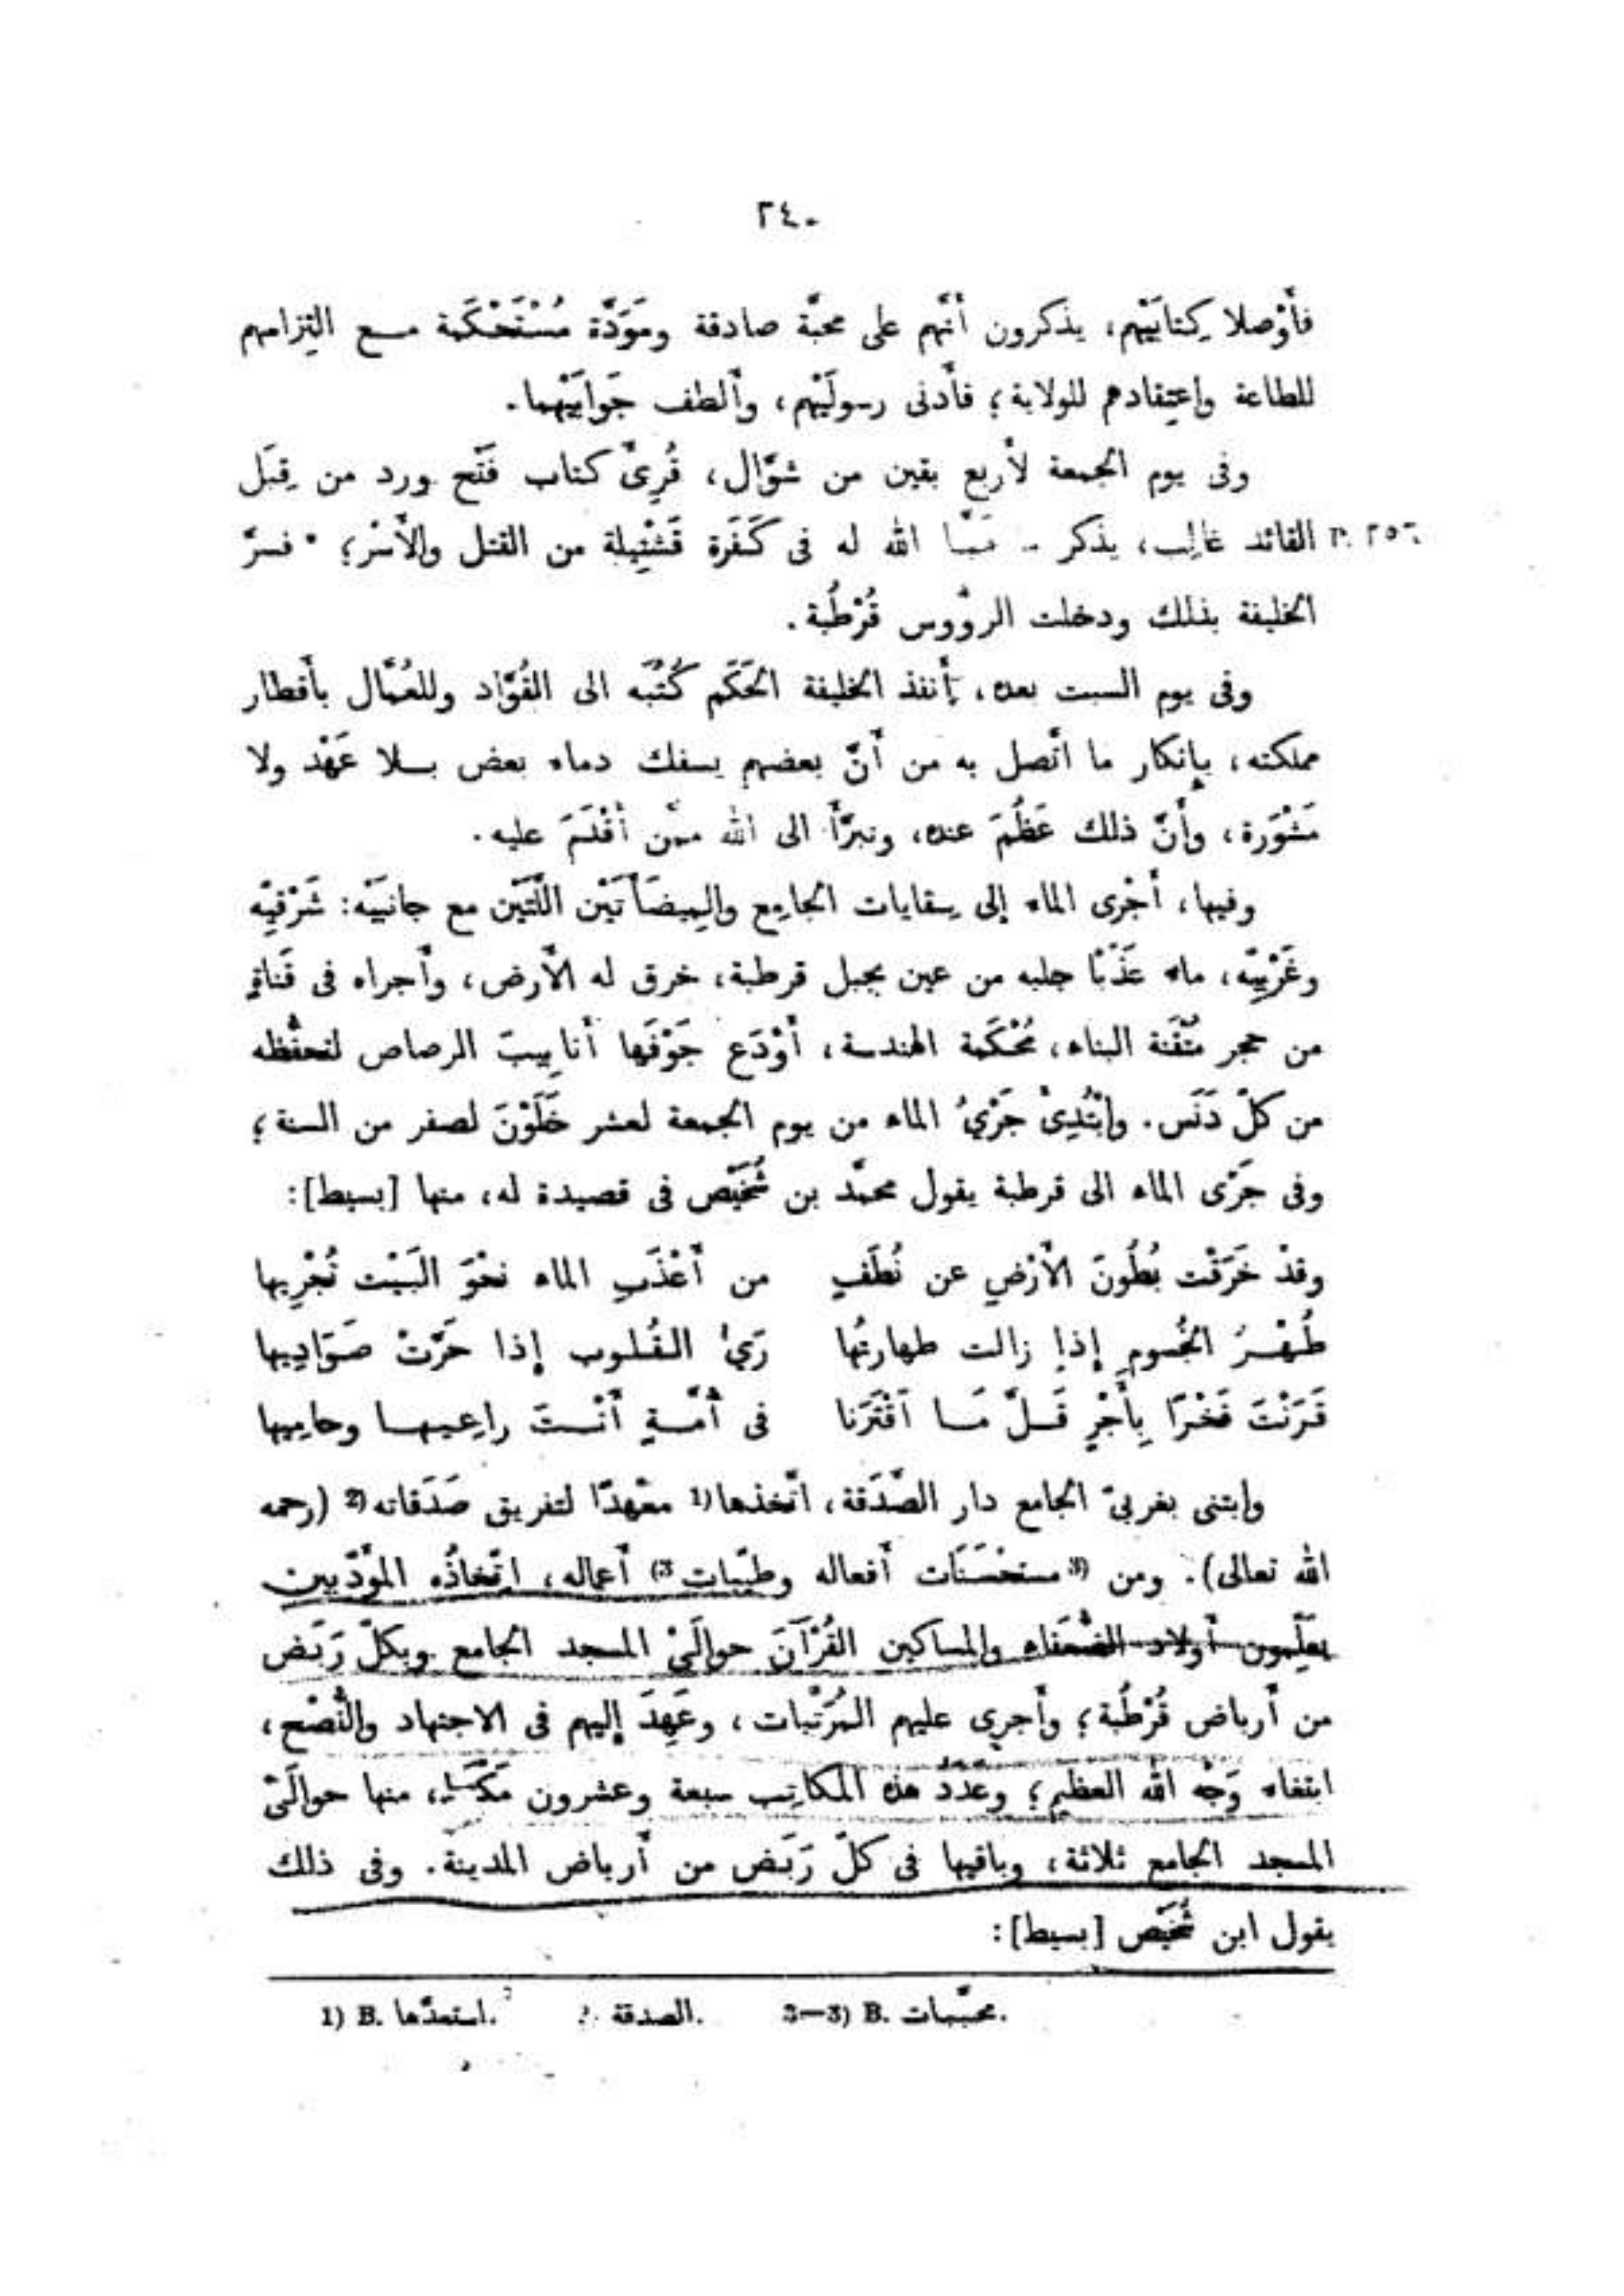 ٢٤٠
فأَوْصلا كِتابَيْهم، يذكرون أنّهم على محبّة صادقة ومَوَدّة مُسْتَحْكَمة مـع التِزامهم
للطاعة واعتِقادهم للولاية؛ فأَدنى رسولَيْهم، وأَلطف جَوابَيْهما.
وفى يوم الجمعة لأربع بقين من شوّال، قُرِئَ كتاب فَتْح ورد من قِبَل
القائد غالِب، يذكر الله له فى كَفَرَة قَشْتِيلة من القتل والأَسْر؛ * فسرّ
p. ٢٥٦
الخليفة بذلك ودخلت الرؤوس قُرْطُبة.
وفى يوم السبت بعده، أنفذ الخليفة الحَكَم كُتُبَه الى القُوّاد وللعُمّال بأقطار
مملكته، بإنكار ما اتّصل به من أَنّ بعضهم يسفك دماء بعض بـلا عَهْد ولا
مَشْوَرة، وأَنّ ذلك عَظُمَ عنده، وتبرّأ الى الله ممّن أَقْدَمَ عليه.
وفيها، أَجْرى الماء إلى سِقايات الجامِع والمِيضَأَتَيْن اللَّتَيْن مع جانبَيْه: شَرْقيِّه
وغَرْبيِّه، ماء عَذْبًا جلبه من عين بجبل قرطبة، خرق له الأرض، وأجراه فى قَناةٍ
من حجر مُتْقَنة البناء، مُحْكَمة الهندسة، أَوْدَع جَوْفَها أنابِيبَ الرصاص لتحفظه
من كلّ دَنَس. وابْتُدِئَ جَرْيُ الماء من يوم الجمعة لعشر خَلَوْنَ لصفر من السنة؛
وفى جَرْى الماء الى قرطبة يقول محمّد بن شُخَيْص فى قصيدة له، منها [بسيط]:
وقدْ خَرَقْت بُطُونَ الأَرْضِ عن نُطَفٍ من أَعْذَبِ الماء نحْوَ البَيْت تُجْرِيها
طُـهْـرُ الجُسومِ إذا زالت طهارتُها رَيُّ القُـلـوب إذا حَرّتْ صَوَادِيها
قَـرَنْتَ فَخْرًا بِأَجْرٍ قَـلَّ مَـا اقْتَرَنا فى أُمّـةٍ أَنْـتَ راعِيـهـا وحامِيها
وابتنى بغربىّ الجامع دار الصّدَقة، اتّخذها (1 معْهدًا لتفريق صَدَقاته (2 (رحمه
الله تعالى). ومن (3 مستحْسَنَات أفعاله وطيّبات (3 أعماله، اتّخاذُه المؤدّبين
يعلّمون أولاد الضُعَفاء والمساكين القُرْآنَ حوالَىْ المسجد الجامع وبكلّ رَبَض
من أرباض قُرْطُبة؛ وأجرى عليهم المُرَتّبات، وعَهِدَ إليهم فى الاجتهاد والنُّصْح،
ابتغاء وَجْه الله العظيم؛ وعَدَدُ هذه المكاتِب سبعة وعشرون مَكْتَبًا، منها حوالَىْ
المسجد الجامع ثلاثة، وباقيها فى كلّ رَبَض من أرباض المدينة. وفى ذلك
يقول ابن شُخَيْص [بسيط]:
1) B. استعدّها. الصدقة. 3—3) B. محبّبات.